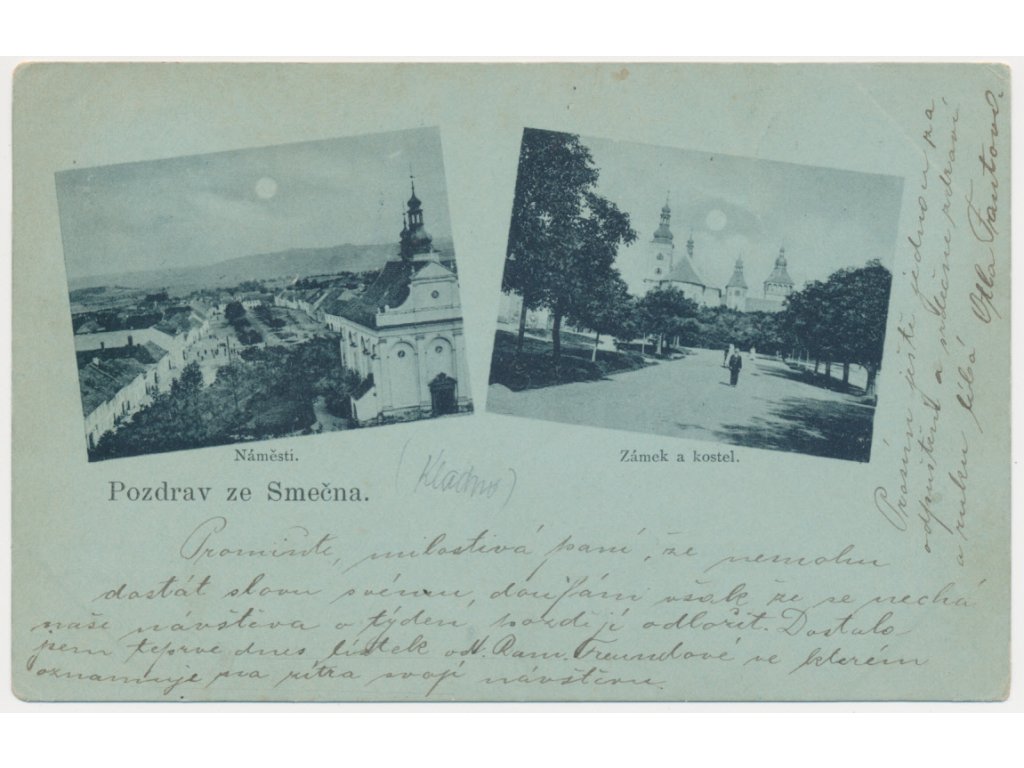 Náměstí.
Zámek a kostel.
Pozdrav ze Smečna.
(Kladno)
Promiňte, milostivá paní, že nemohu
dostát slovu svému, doufám však že se nechá
naše návštěva o týden později odložit. Dostala
jsem teprve dnes lístek od. Freundové ve kterém
oznamuje na zítra svojí návštěvu.
Prosím ještě jednou za
odpuštění a srdečně pozdraví
a ruku líbá Olla